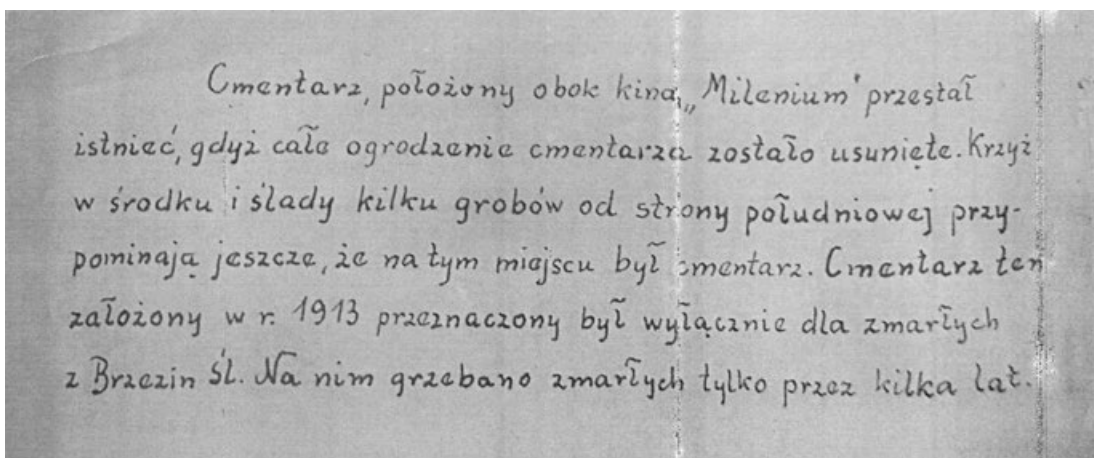 Cmentarz, położony obok kina „Milenium" przestał
istnieć, gdyż całe ogrodzenie cmentarza zostało usunięte. Krzyż
w środku i ślady kilku grobów od strony południowej przy-
pominają jeszcze, że na tym miejscu był cmentarz. Cmentarz ten
założony w r. 1913 przeznaczony był wyłącznie dla zmarłych
z Brzezin Śl. Na nim grzebano zmarłych tylko przez kilka lat.